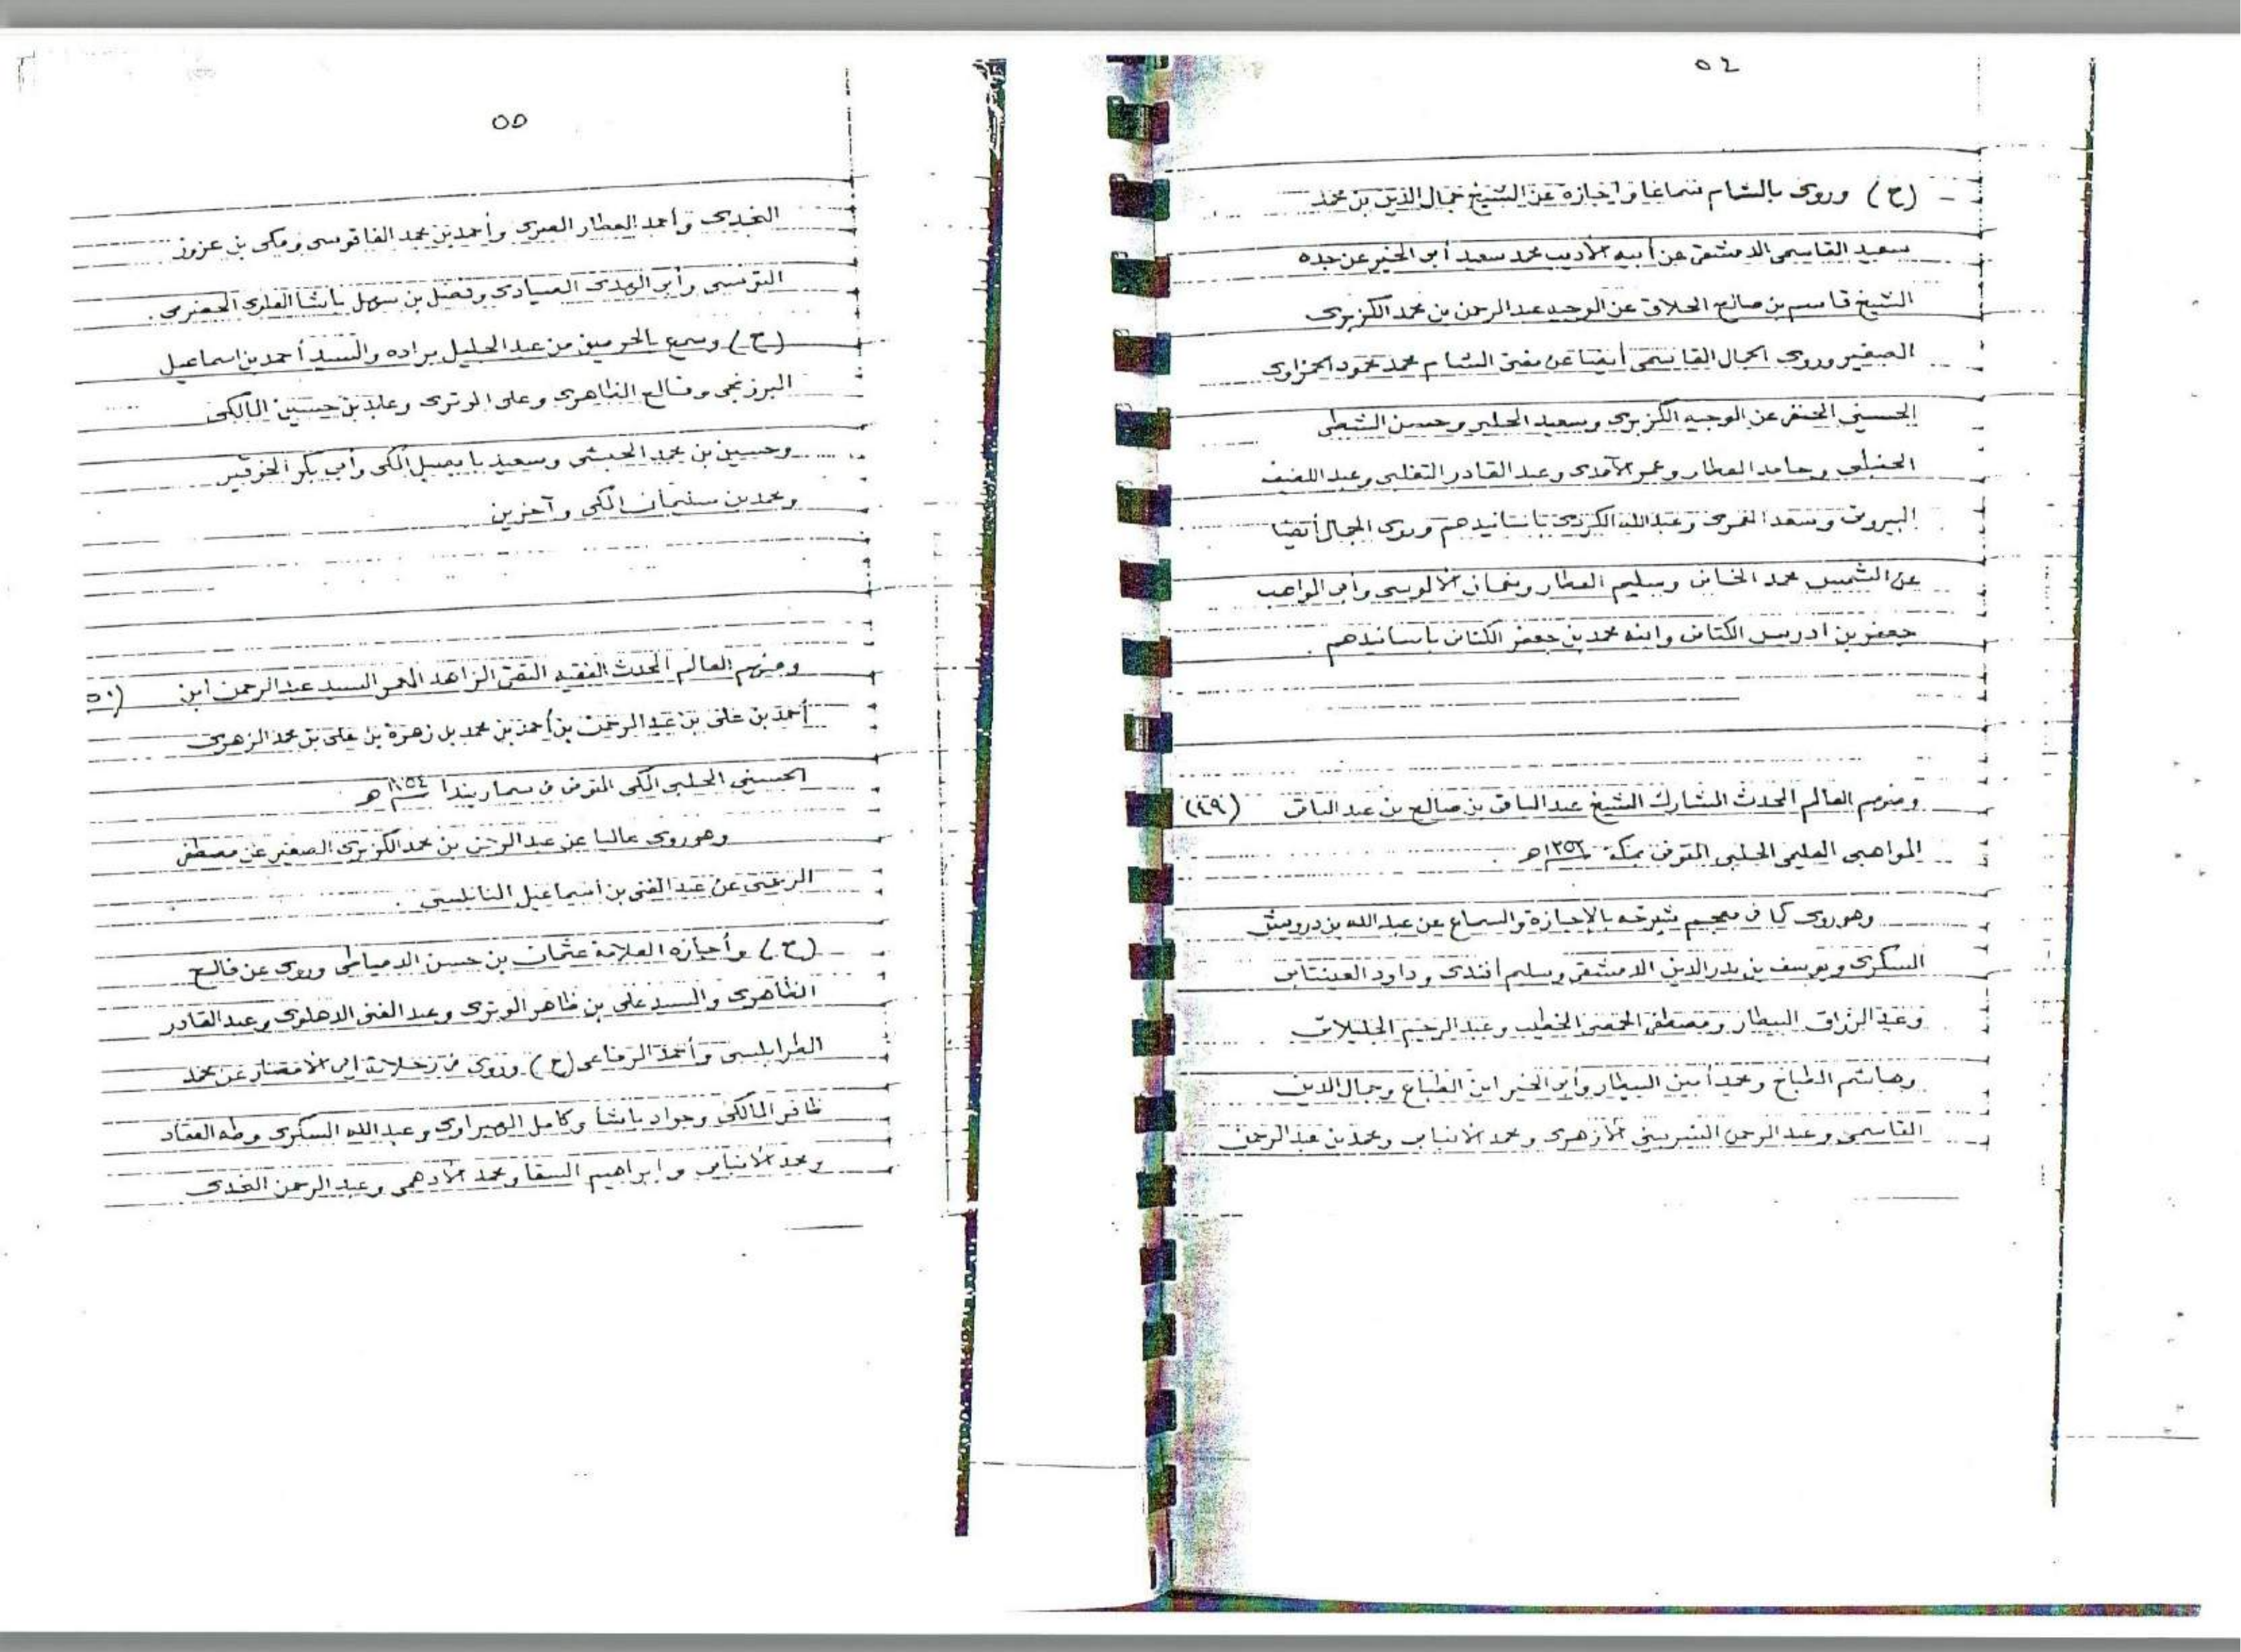 ٥٤
(ح) وروى بالشام سماعا واجازة عن الشيخ جمال الدين بن محمد
سعيد القاسمى الدمشقى عن أبيه الأديب محمد سعيد أبى الخير عن جده
الشيخ قاسم بن صالح الحلاق عن الوجيه عبد الرحمن بن محمد الكزبرى
الصغير وروى الجمال القاسمى أيضا عن مفتى الشام محمد محمود الحمزاوى
الحسينى الحنفى عن الوجيه الكزبرى وسعيد الحلبى وحسن الشطى
الحنبلى وحامد العطار وعمر الآمدى وعبد القادر التغلبى وعبد اللطيف
البيروتى وسعد العمرى وعبد الله الكردى بأسانيدهم وروى الجمال أيضا
عن الشمس محمد الخانى وسليم العطار ونعمان الألوسى وأبى المواهب
جعفر بن ادريس الكتانى وابنه محمد بن جعفر الكتانى بأسانيدهم .
ومنهم العالم المحدث المشارك الشيخ عبد الباقى بن صالح بن عبد الباقى (٤٩)
المواهبى العليمى الحلبى المتوفى بمكة ١٣٥٢هـ .
وهو روى كما فى معجم شيوخه بالإجازة والسماع عن عبد الله بن درويش
السكرى ويوسف بن بدر الدين الدمشقى وسليم أفندى وداود العينتابى
وعبد الرزاق البيطار ومصطفى الخطيب وعبد الرحيم
وهاشم الطباخ ومحمد أمين البيطار وأبى الخير ابن الطباع وجمال الدين
القاسمى وعبد الرحمن الشربينى الأزهرى ومحمد الانبابى ومحمد بن عبد الرحمن
٥٥
وأحمد العطار وأحمد بن محمد الفاقوسى ومكى بن عزوز
التونسى وأبى الهدى الصيادى وفضل بن سهل باشا العلوى الحضرمى .
(ح) وسمع بالحرمين من عبد الجليل براده والسيد أحمد بن اسماعيل
البرزنجى وفالح الظاهرى وعلى الوترى وعابد بن حسين المالكى
وحسين بن محمد الحبشى وسعيد بابصيل المكى وأبى بكر الخوقير
ومحمد بن سليمان المكى وآخرين
ومنهم العالم المحدث الفقيه التقى الزاهد المعمر السيد عبد الرحمن ابن (٥٠
أحمد بن على بن عبد الرحمن بن أحمد بن محمد بل زهرة بن على بن محمد الزهرى
الحسينى الحلبى المكى المتوفى فى سماريندا ١٣٥٤هـ
وهو روى عاليا عن عبد الرحمن بن محمد الكزبرى الصغير عن مصطفى
الرحمتى عن عبد الغنى بن اسماعيل النابلسى .
(ح) وأجازه العلامة عثمان بن حسن الدمياطى وروى عن فالح
الظاهرى والسيد على بن ظاهر الوترى وعبد الغنى الدهلوى وعبد القادر
الطرابلسى وأحمد الرفاعى (ح) وروى فى رحلاته الى الأمصار عن محمد
ظافر المالكى وجواد باشا وكامل الهبراوى وعبد الله السكرى وطه العقاد
ومحمد الأنبابى وابراهيم السقا ومحمد الأدهمى وعبد الرحمن